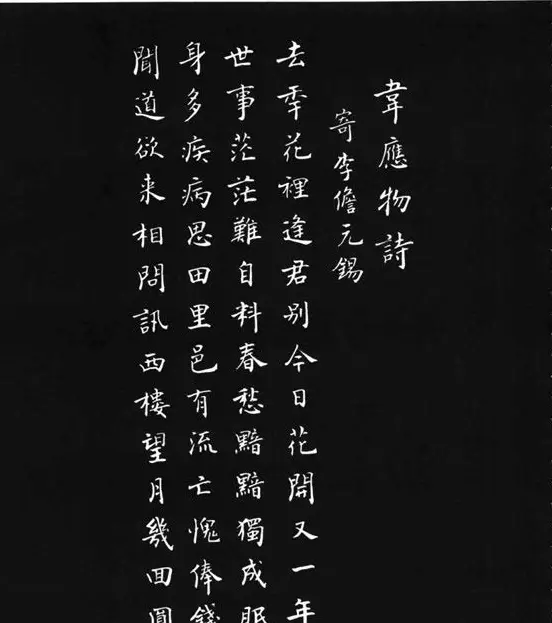 韋應物詩
寄李儋元錫
去秊花裡逢君别今日花開又一年
世事茫茫難自料春愁黯黯獨成眠
身多疾病思田里邑有流亡愧俸錢
聞道欲来相問訊西樓望月幾囬圓